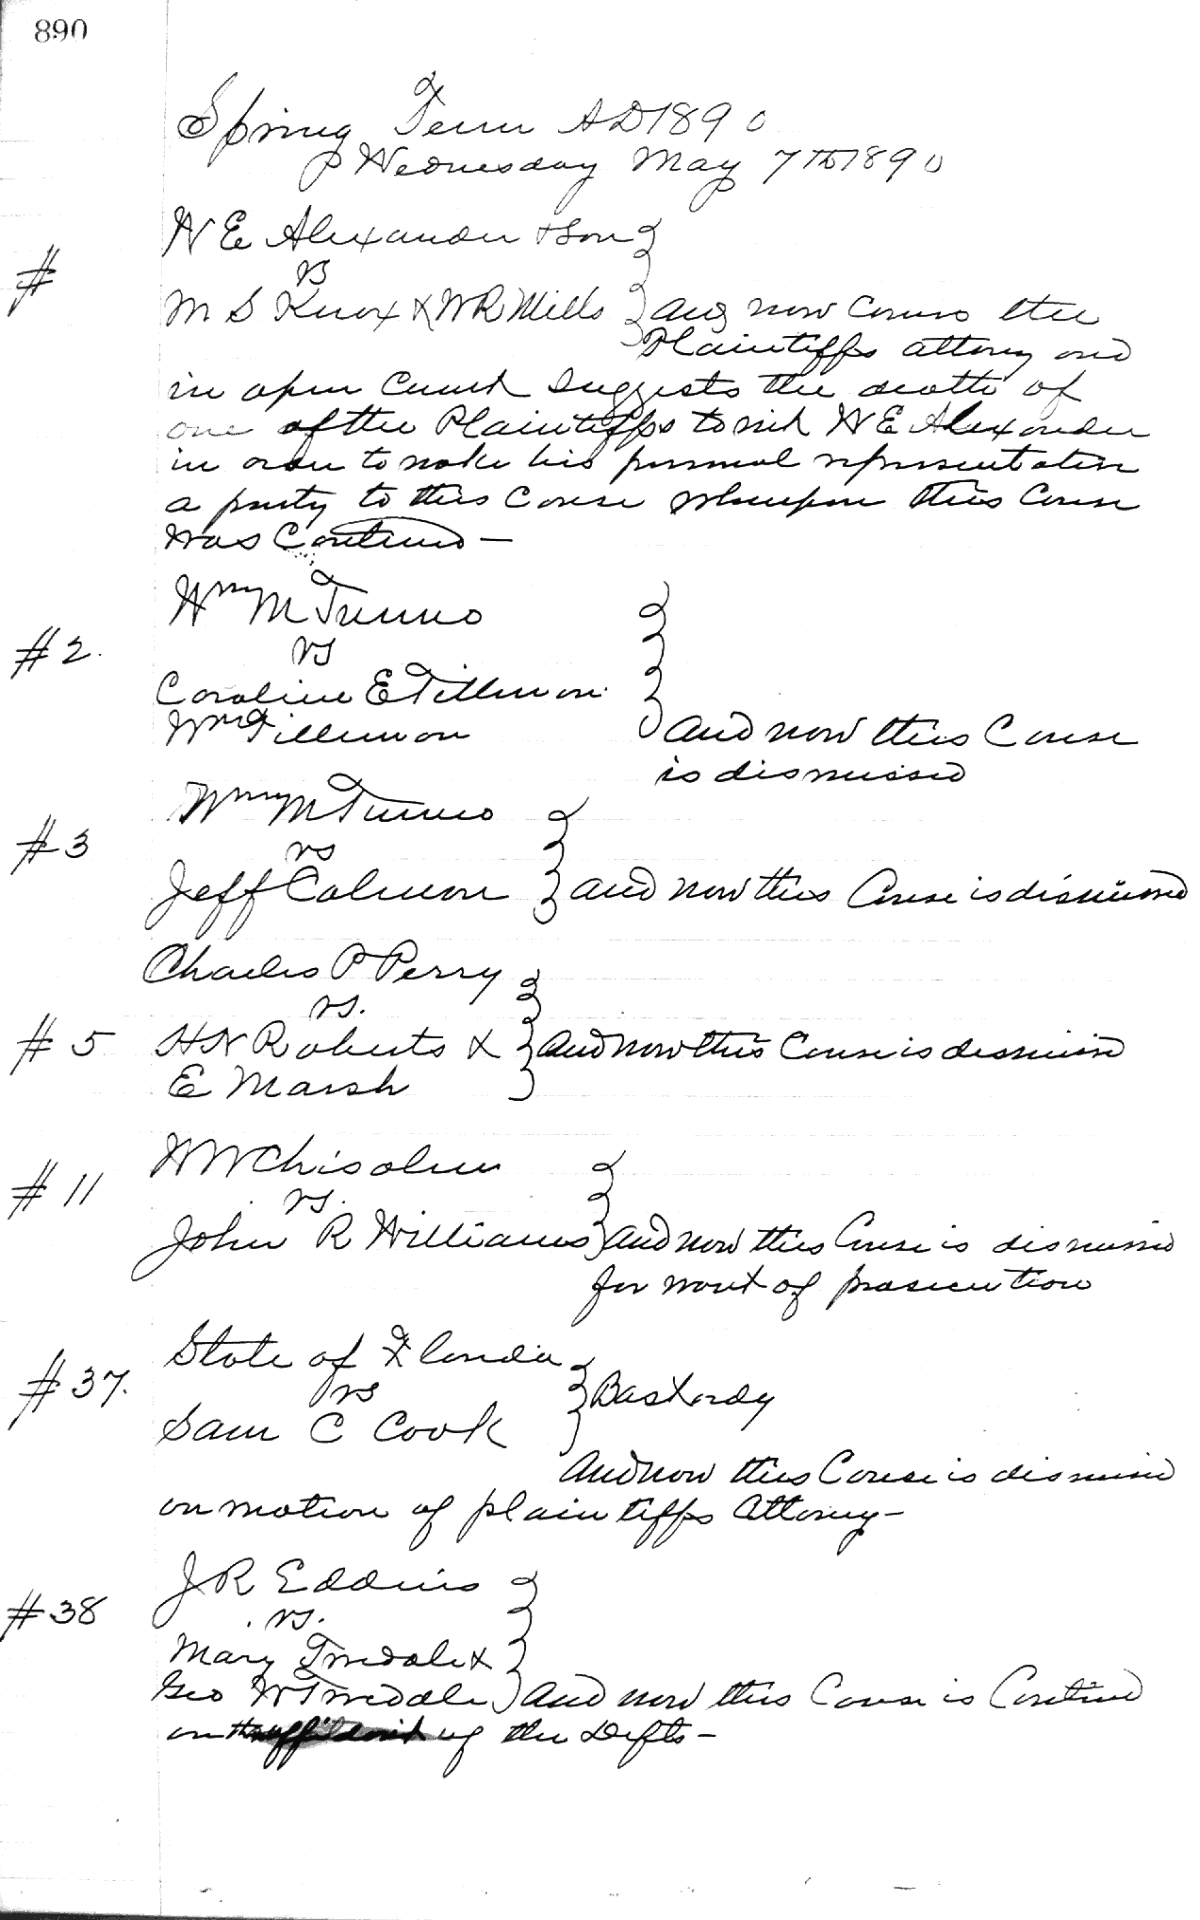 890
Spring Term AD 1890
Wednesday May 7th 1890
W E Alexander & Son
#
vs
M S Knox & W R Mills } and now comes the
Plaintiffs attorney and
in open Court suggests the death of
one of the Plaintiffs to wit W E Alexander
in order to make his personal representative
a party to this Cause whereupon this Cause
was Continued —
Wm M Tunno
#2.
vs
Caroline E Tillman
Wm Tillman } and now this Cause
is dismissed
Wm M Tunno
#3
vs
Jeff Colman } and now this Cause is dismissed
Charles P Perry
vs.
#5 H N Roberts & } and now this Cause is dismissed
E Marsh
W W Chisolm
#11
vs.
John R Williams } and now this Cause is dismissed
for want of prosecution
State of Florida
#37. vs } Bastardy
Sam C Cook
and now this Cause is dismissed
on motion of plaintiffs attorney —
J R Eddins
#38 vs.
Mary Tredale &
Geo W Tredale } and now this Cause is Continued
on the affidavit of the Defts —